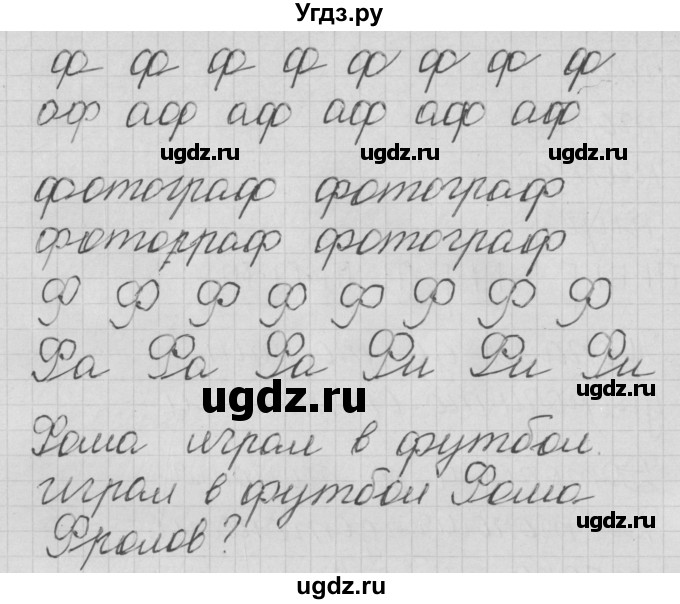 Угдз.ру
ф ф ф ф ф ф ф ф
аф аф аф аф аф аф
ugdz.ru ugdz.ru ugdz.ru
фотограф фотограф
фотограф фотограф
Ф Ф Ф Ф Ф Ф Ф Ф
Фа Фа Фа Фи Фи Фи
ugdz.ru ugdz.ru
Фома играл в футбол.
играл в футбол Фома
ugdz.ru
Фролов?
ugdz.ru